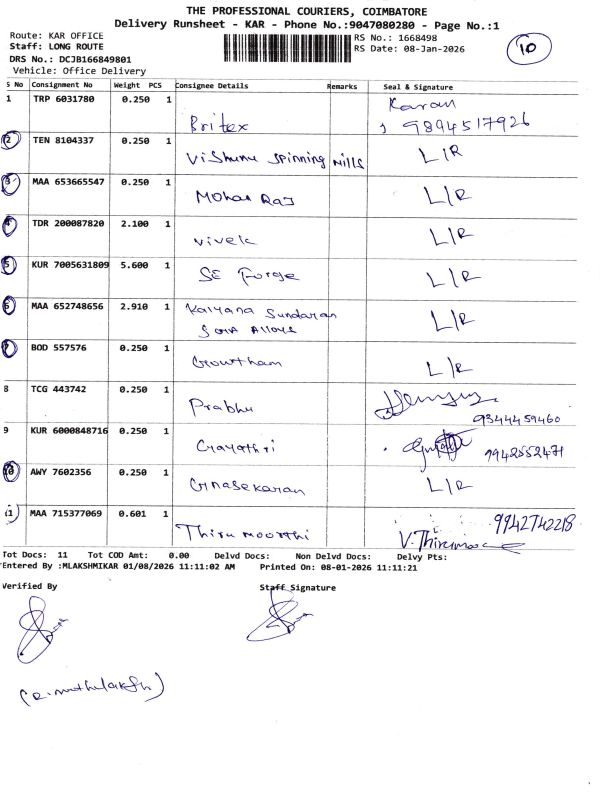 THE PROFESSIONAL COURIERS, COIMBATORE
Delivery Runsheet - KAR - Phone No.:9047080280 - Page No.:1
Route: KAR OFFICE
RS No.: 1668498
10
Staff: LONG ROUTE
RS Date: 08-Jan-2026
DRS No.: DCJB166849801
Vehicle: Office Delivery
S No Consignment No Weight PCS Consignee Details Remarks Seal & Signature
1 TRP 6031780 0.250 1 Britex Karan 9894517926
2 TEN 8104337 0.250 1 Vishunu Spinning Mills L/R
3 MAA 653665547 0.250 1 Mohan Raj L/R
4 TDR 200087820 2.100 1 Vivek L/R
5 KUR 7005631809 5.600 1 SE Forge L/R
6 MAA 652748656 2.910 1 Kalyana Sundaran L/R
Alloys
7 BOD 557576 0.250 1 Gowtham L/R
8 TCG 443742 0.250 1 Prabhu 9344459460
9 KUR 6000848716 0.250 1 Gayathri 9942552471
10 AWY 7602356 0.250 1 Gnasekaran L/R
11 MAA 715377069 0.601 1 Thirumoorthi 9942742218
V. Thirumoo
Tot Docs: 11 Tot COD Amt: 0.00 Delvd Docs: Non Delvd Docs: Delvy Pts:
Entered By :MLAKSHMIKAR 01/08/2026 11:11:02 AM Printed On: 08-01-2026 11:11:21
Verified By Staff Signature
(R. muthulakshi)